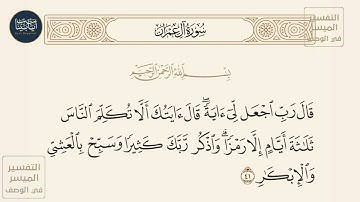 سُورَةُ آلِ عِمْرَانَ
التفسير
الميسر
في الوصف
بِسْمِ اللَّهِ الرَّحْمَٰنِ الرَّحِيمِ
قَالَ رَبِّ ٱجْعَل لِّىٓ ءَايَةً ۖ قَالَ ءَايَتُكَ أَلَّا تُكَلِّمَ ٱلنَّاسَ
ثَلَٰثَةَ أَيَّامٍ إِلَّا رَمْزًا ۗ وَٱذْكُر رَّبَّكَ كَثِيرًا وَسَبِّحْ بِٱلْعَشِىِّ
وَٱلْإِبْكَٰرِ ٤١
التفسير
الميسر
في الوصف